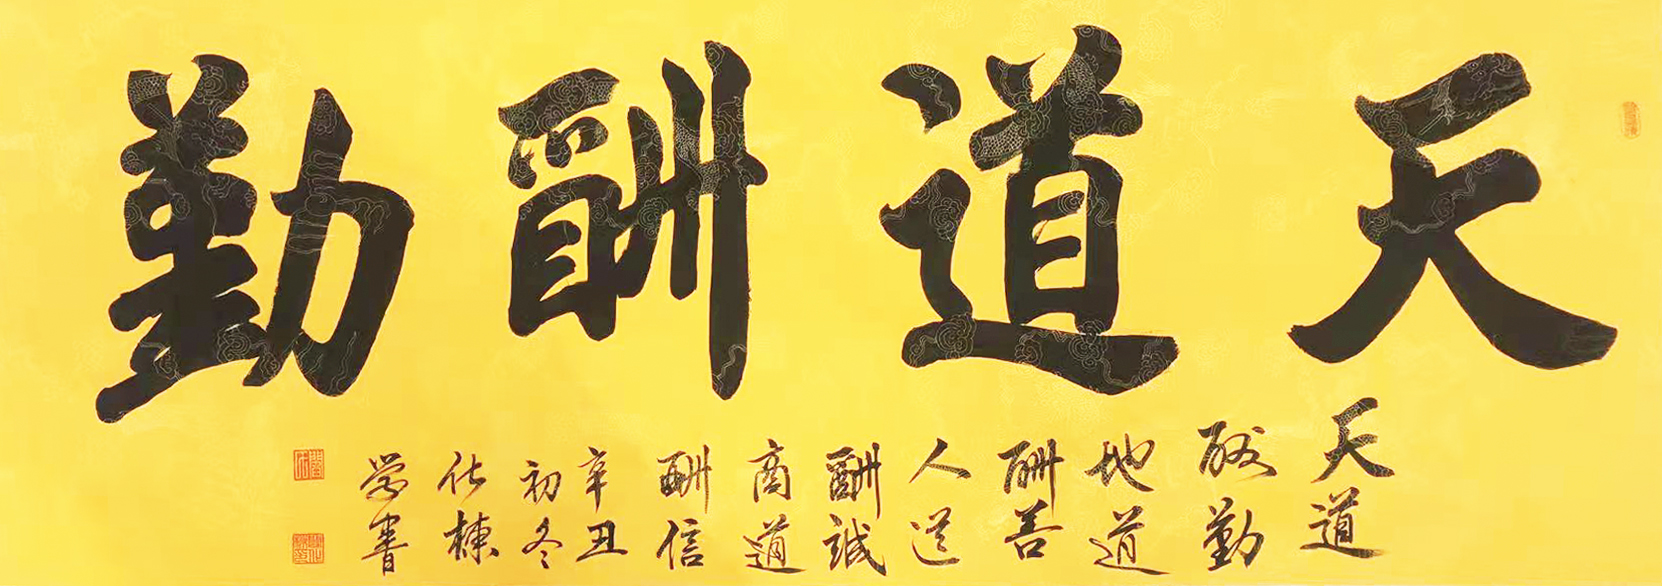 天道酬勤
天道
酧勤
地道
酬善
人道
酬誠
商道
酬信
辛丑
初冬
化棟
学書